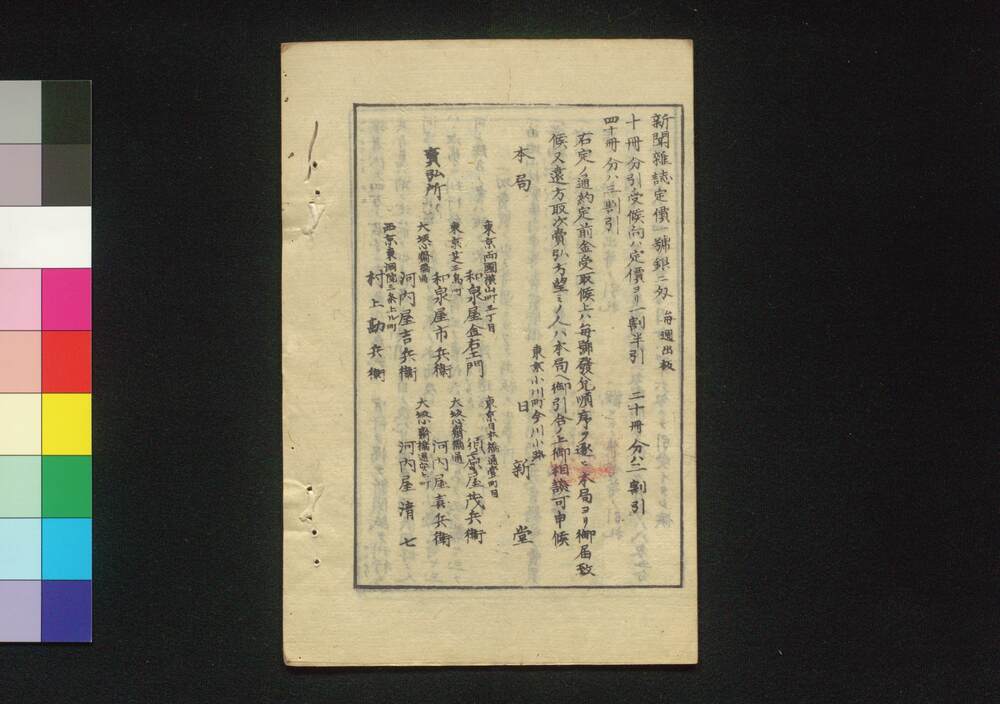 新聞雑誌定價一號銀二匁 毎週出板
十冊分引受候向ハ定價ヨリ一割半引 二十冊分ハ二割引
四十冊分ハ三割引
右定ノ通約定前金受取候上ハ毎號發兌順序ヲ逐ヒ本局ヨリ御届致
候又遠方取次賣弘方望ミノ人ハ本局ヘ御引合ノ上御相談可申候
東京小川町今川小路
本局 日新堂
賣弘所
東京両國横山町三丁目
和泉屋金右エ門
東京日本橋通壹町目
須原屋茂兵衛
東京芝三島町
和泉屋市兵衛
大坂心齋橋通
河内屋喜兵衛
大坂心齋橋通
河内屋吉兵衛
大坂心齋橋通
河内屋清七
西京東洞院三条上ル町
村上勘兵衛